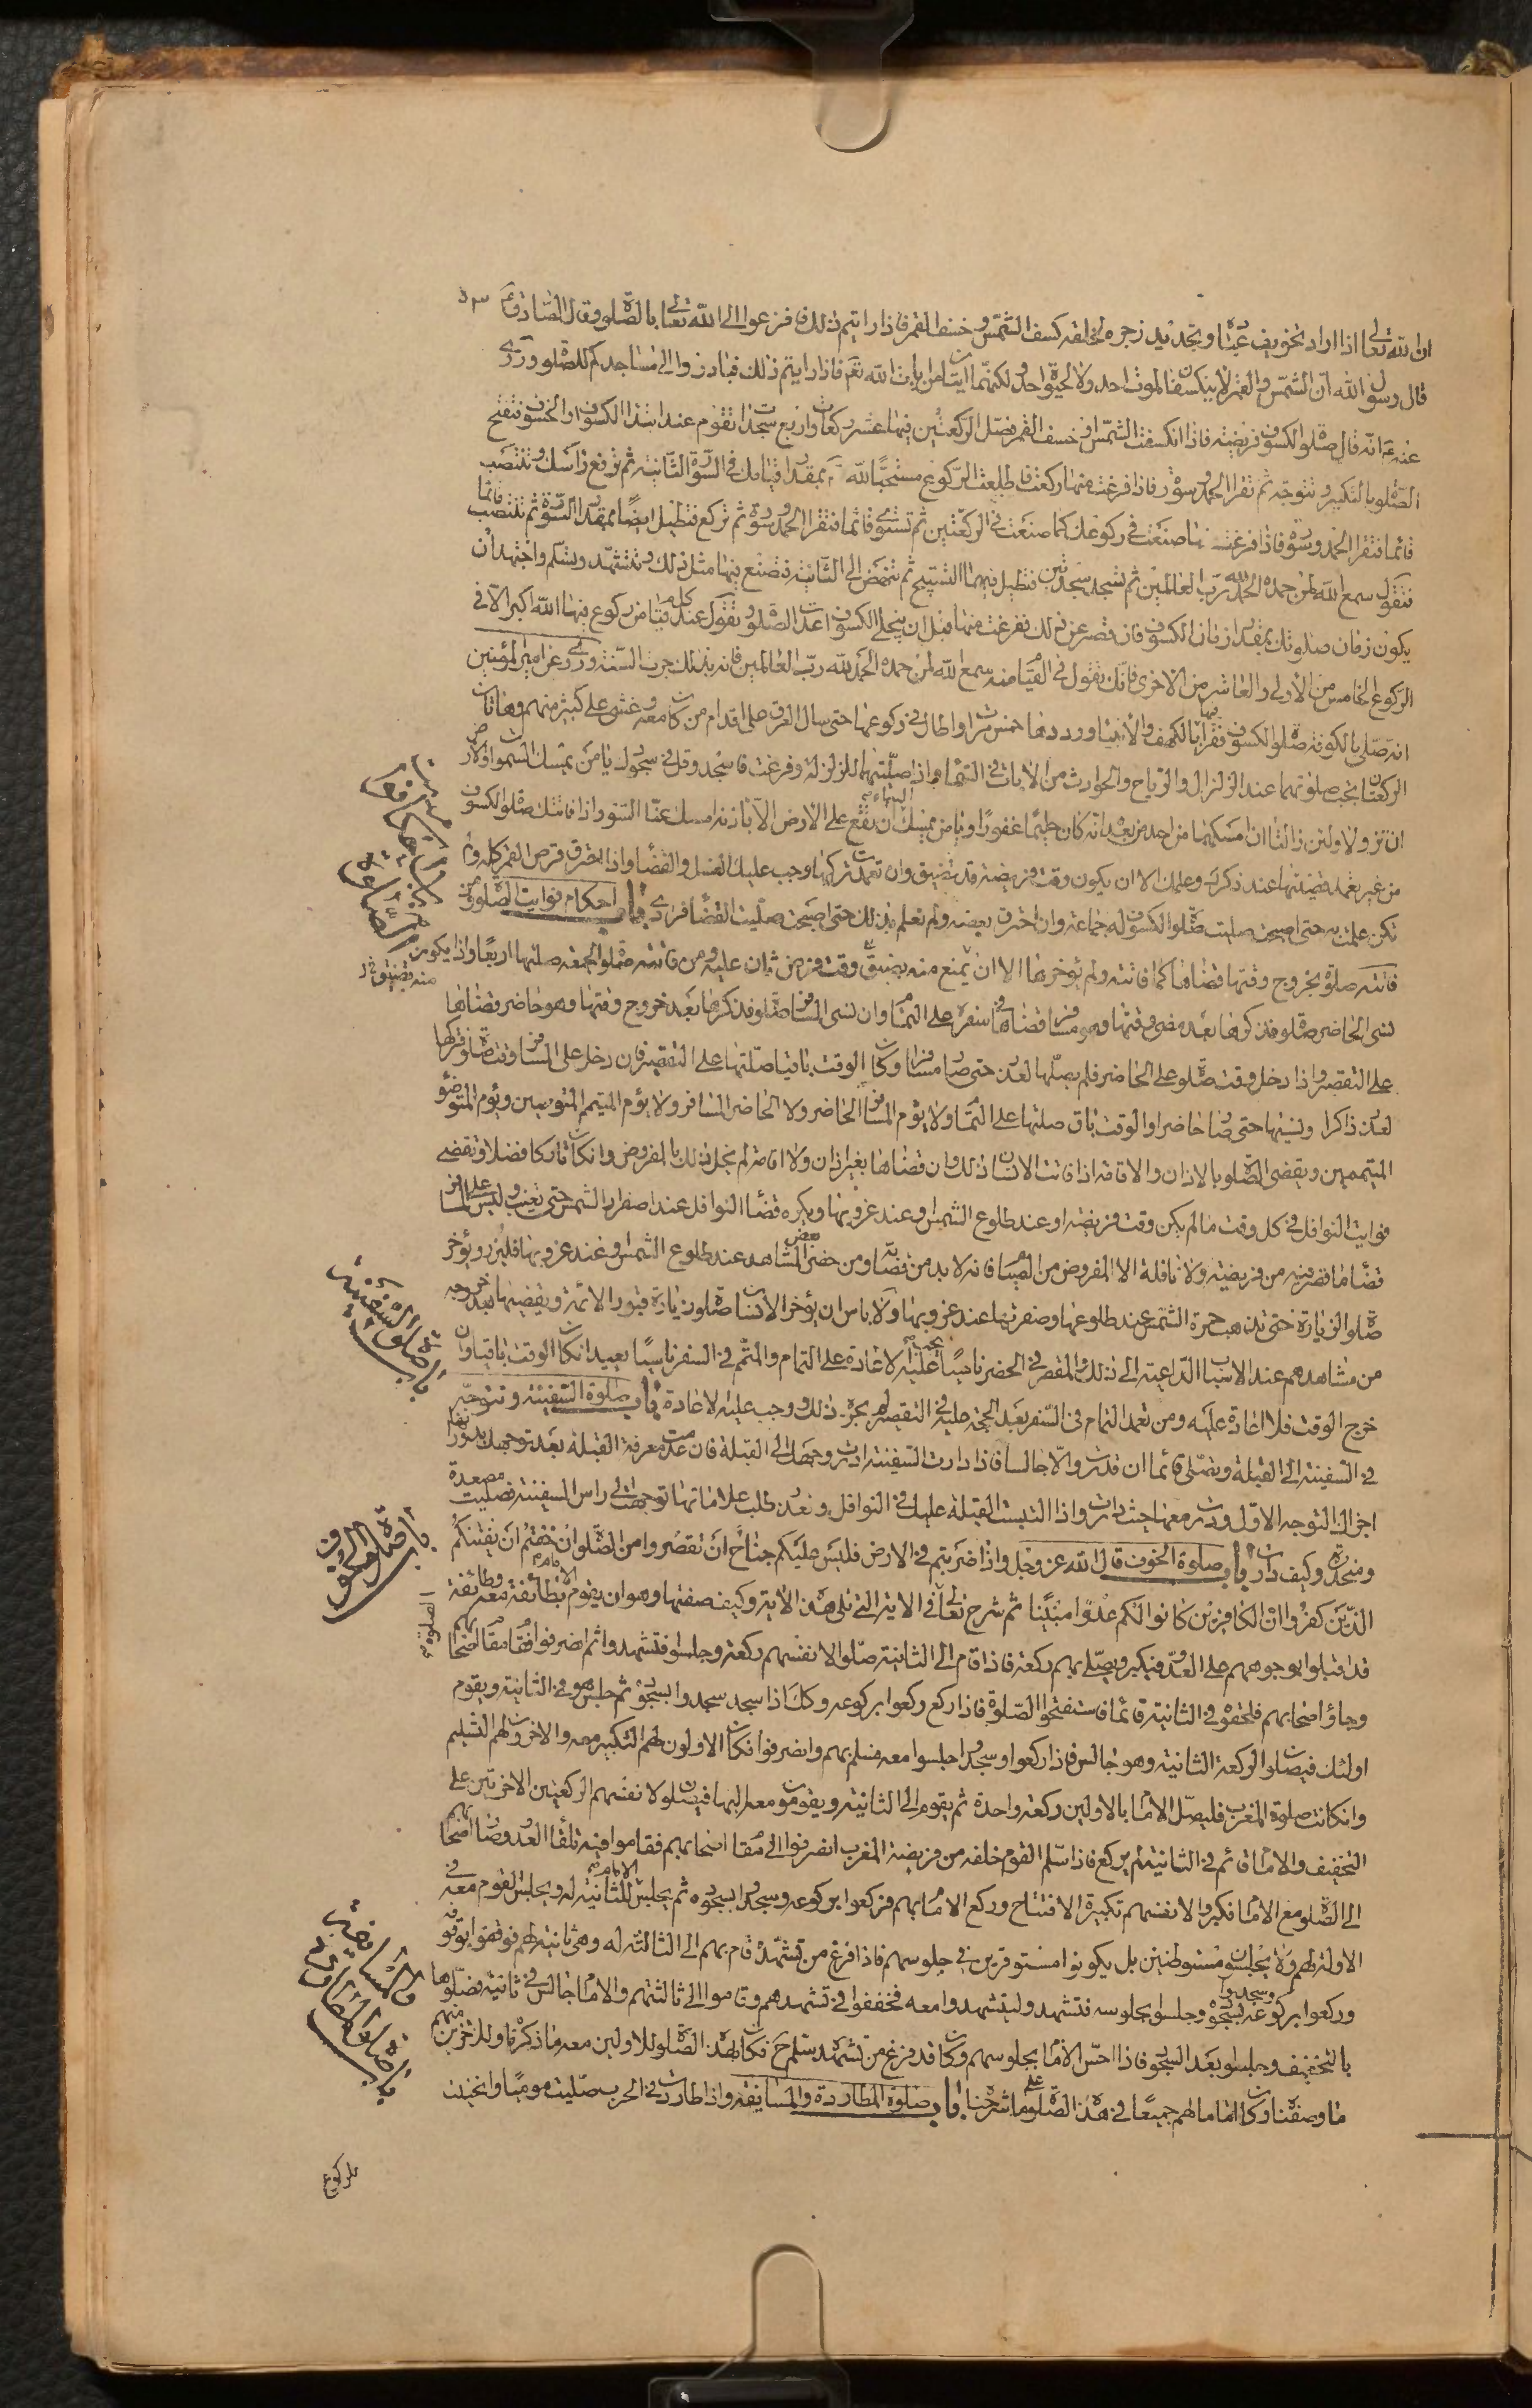 ان لله تعالى اذا اراد تخويف عباده وتجديد زجره لخلقه كسف الشمس وخسف القمر فاذا رايتم ذلك فافزعوا الى الله تعالى بالصلوة وقال الصادق ع
قال رسول الله ان الشمس والقمر لا ينكسفان لموت احد ولا لحيوة احد ولكنهما ايتان من ايات الله تعم فاذا رايتم ذلك فبادروا الى مساجدكم للصلوة وروى
عنه ع انه قال صلوة الكسوف فريضة فاذا انكسفت الشمس او خسف القمر فصل الركعتين فيهما عشر ركعات واربع سجدات تقوم عند ابتداء الكسوف او الخسوف فتفتح
الصلوة بالتكبير وتتوجه ثم تقرأ الحمد وسورة فاذا فرغت منها ركعت فاطلت الركوع مسبحا لله بمقدار قيامك في السورة الثانية ثم ترفع راسك وتنتصب
قائما فتقرأ الحمد وسورة فاذا فرغت صنعت في ركوعك كما صنعت في الركعتين ثم تستوى قائما فتقرأ الحمد وسورة ثم تركع فتطيل ايضا بمقدار السورة ثم تنتصب قائما
فتقول سمع الله لمن حمده الحمد لله رب العالمين ثم تسجد سجدتين فتطيل فيهما التسبيح ثم تنهض الى الثانية فتصنع فيها مثل ذلك وتتشهد وتسلم واجتهد ان
يكون زمان صلوتك بمقدار زمان الكسوف فان قصر عن ذلك ففرغت منها قبل ان ينجلي الكسوف اعدت الصلوة وتقول عند كل قيام من ركوع فيها الله اكبر الا في
الركوع الخامس من الاولى والعاشر من الاخرى فانك تقول في القيام منه سمع الله لمن حمده الحمد لله رب العالمين فانه بذلك جرت السنة وروى عن امير المؤمنين
انه صلى بالكوفة صلوة الكسوف فقرأ فيها بالكهف والانبياء ورددها خمس مرات واطال في ركوعها حتى سال العرق على اقدام من كان معه وغشى على كثير منهم وهاتان
الركعتان يجب صلوتهما عند الزلازل والرياح والحوادث من الايات في السماء واذا صليتهما للزلزلة وفرغت فاسجد وقل في سجودك يا من يمسك السموات والارض
ان تزولا ولئن زالتا ان امسكهما من احد من بعده انه كان حليما غفورا ويا من يمسك السماء ان تقع على الارض الا باذنه امسك عنا السوء واذا فاتتك صلوة الكسوف
من غير تعمد قضيتها عند ذكرك وعلمك الا ان يكون وقت فريضة قد تضيق وان تعمدت تركها وجب عليك الغسل والقضاء واذا احترق قرص القمر كله ولم
تكن علمت به حتى اصبحت صليت صلوة الكسوف له جماعة وان احترق بعضه ولم تعلم بذلك حتى اصبحت صليت القضاء فرادى باب احكام فوايت الصلوة ومن
فاتته صلوة بخروج وقتها قضاها كما فاتته ولم يؤخرها الا ان يمنع منه تضيق وقت فرض ثان عليه ومن فاتته صلوة الجمعة صلاها اربعا واذا
لنسى الحاضر صلوة فذكرها بعد مضى وقتها وهو مسافر قضاها في سفره على التمام وان نسى المسافر صلوة فذكرها بعد خروج وقتها وهو حاضر قضاها
على التقصير واذا دخل وقت صلوة على الحاضر فلم يصلها لعذر حتى صار مسافرا وكان الوقت باقيا صلاها على التقصير فان دخل على المسافر وقت صلوة فتركها
لعذر ذاكرا ونسيها حتى صار حاضرا والوقت باق صلاها على التمام ولا يؤم المسافر الحاضر ولا الحاضر المسافر ولا يؤم المتيمم المتوضين ويؤم المتوضؤ
المتيممين ويقضى الصلوة بالاذان والاقامة اذا فاتت الانسان ذلك وان قضاها بغير اذان ولا اقامة لم يخل ذلك بالمفروض وان كان تاركا فضلا وتقضى
فوايت النوافل في كل وقت ما لم يكن وقت فريضة او عند طلوع الشمس او عند غروبها ويكره قضاء النوافل عند اصفرار الشمس حتى تغيب وليس على المسافر
قضاء ما قصر فيه من فريضة ولا نافلة الا المفروض من الصيام فانه لا بد من قضائه ومن حضر بعض المشاهد عند طلوع الشمس وعند غروبها فليزر ويؤخر
صلوة الزيارة حتى تذهب حمرة الشمس عند طلوعها وصفرتها عند غروبها ولا باس ان يؤخر الانسان صلوة زيارة قبور الائمة ويقضيها بعد خروجه
من مشاهدهم عند الاسباب الداعية الى ذلك والمقصر في الحضر ناسيا يجب عليه الاعادة على التمام والمتمم في السفر ناسيا يعيد ان كان الوقت باقيا وان
خرج الوقت فلا اعادة عليه ومن تعمد التمام في السفر بعد الحجة عليه في التقصير لم يجزه ذلك ووجب عليه الاعادة باب صلوة السفينة وتتوجه
في السفينة الى القبلة وتصلى قائما ان قدرت والا جالسا فاذا دارت السفينة ادرت وجهك الى القبلة فان عدمت معرفة القبلة بعد توجهك بدورانها
اجزاك التوجه الاول ودرت معها حيث دارت واذا التبست القبلة عليك في النوافل وتعذر طلب علاماتها توجهت الى راس السفينة فصليت مصعدة
ومنحدرة وكيف دارت باب صلوة الخوف قال الله عز وجل واذا ضربتم في الارض فليس عليكم جناح ان تقصروا من الصلوة ان خفتم ان يفتنكم
الذين كفروا ان الكافرين كانوا لكم عدوا مبينا ثم شرح تعالى في الاية التي تلى هذه الاية وكيف صفتها وهو ان يقوم الامام بطائفة معه وطائفة
قد اقبلوا بوجوههم على العدو فيكبر ويصلى بهم ركعة فاذا قام الى الثانية صلوا لانفسهم ركعة وجلسوا فتشهدوا ثم انصرفوا فقاموا مقام اصحابهم
وجاؤا اصحابهم فلحقوه في الثانية قائما فاستفتحوا الصلوة فاذا ركع ركعوا بركوعه وكك اذا سجد سجدوا بسجوده ثم جلس هو في الثانية ويقوم
اولئك فيصلوا الركعة الثانية وهو جالس فاذا ركعوا وسجدوا جلسوا معه فسلم بهم وانصرفوا فكان الاولون لهم التكبير معه والاخرون لهم التسليم
وان كانت صلوة المغرب فليصل الامام بالاولين ركعة واحدة ثم يقوم الى الثانية ويقومون معه اليها فيصلوا لانفسهم الركعتين الاخرتين على
التخفيف والامام قائم في الثانية لم يركع فاذا سلم القوم خلفه من فريضة المغرب انصرفوا الى مقام اصحابهم فقاموا فيه تلقاء العدو وصار اصحابهم
الى الصلوة مع الامام فكبروا لانفسهم تكبيرة الافتتاح وركع الامام بهم فركعوا بركوعه وسجدوا بسجوده ثم يجلس الامام للثانية له ويجلس القوم معه في
الاولة لهم ولا يجلسون مستوطنين بل يكونوا مستوفزين في جلوسهم فاذا فرغ من تشهده قام بهم الى الثالثة له وهي ثانية لهم فوقفوا بوقوفه
وركعوا بركوعه وسجدوا بسجوده وجلسوا بجلوسه فتشهد وليتشهدوا معه فخففوا في تشهدهم وقاموا الى ثالثتهم والامام جالس في ثانيته فصلوها
بالتخفيف وجلسوا بعد السجود فاذا احس الامام بجلوسهم وكان قد فرغ من تشهده سلم ح فكان بهذه الصلوة للاولين معه ما ذكرناه وللاخرين منهم
ما وصفناه وكان اماما لهم جميعا في هذه الصلوة على ما شرحناه باب صلوة المطاردة والمسايفة واذا طاردت في الحرب صليت موميا وانحنيت
باب صلوة السفينة
باب صلوة الخوف
باب صلوة المطاردة والمسايفة
للركوع